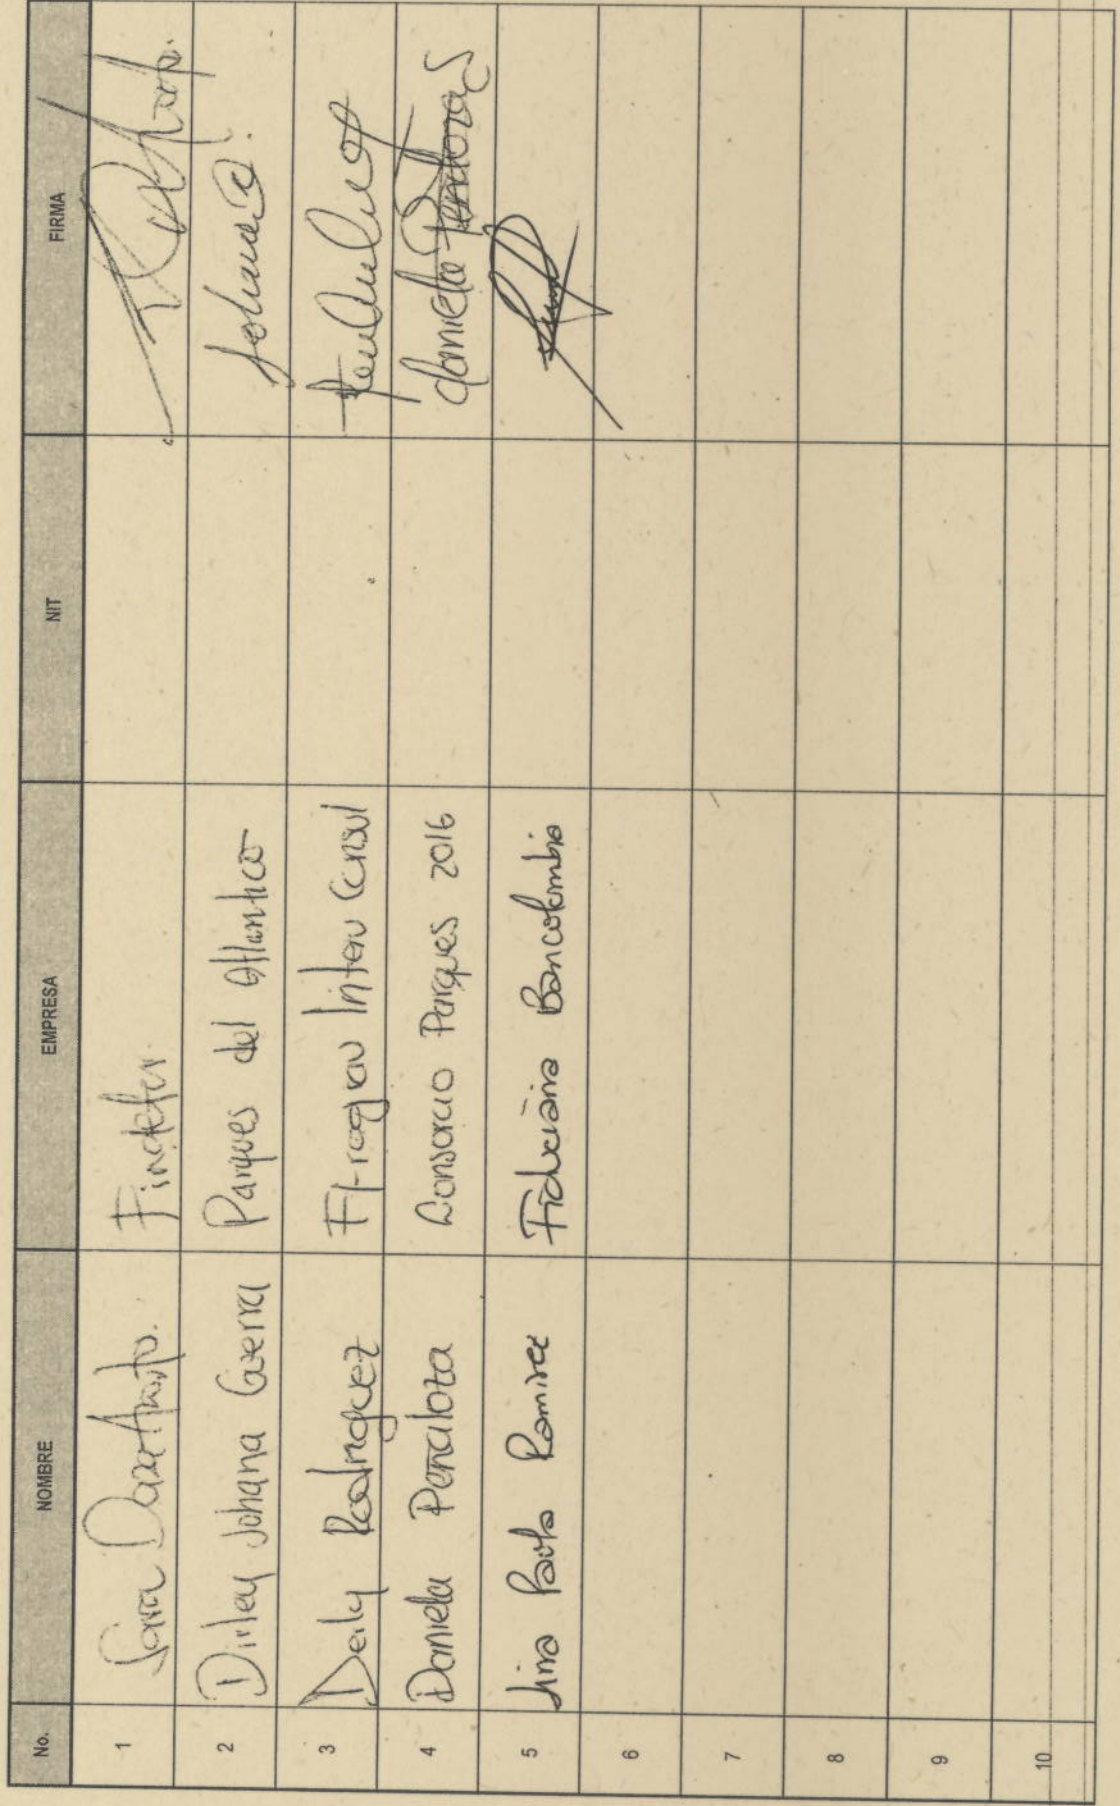 No. NOMBRE EMPRESA NIT FIRMA
1 Sara Daza Findeter
2 Dirley Johana Guerra Parques del Atlantico Johana G.
3 Deily Rodriguez Interv Consul
4 Daniela Penaloza Consorcio Parques 2016 daniela Penaloza
5 Lina Paola Ramirez Fiduciaria Bancolombia
6
7
8
9
10